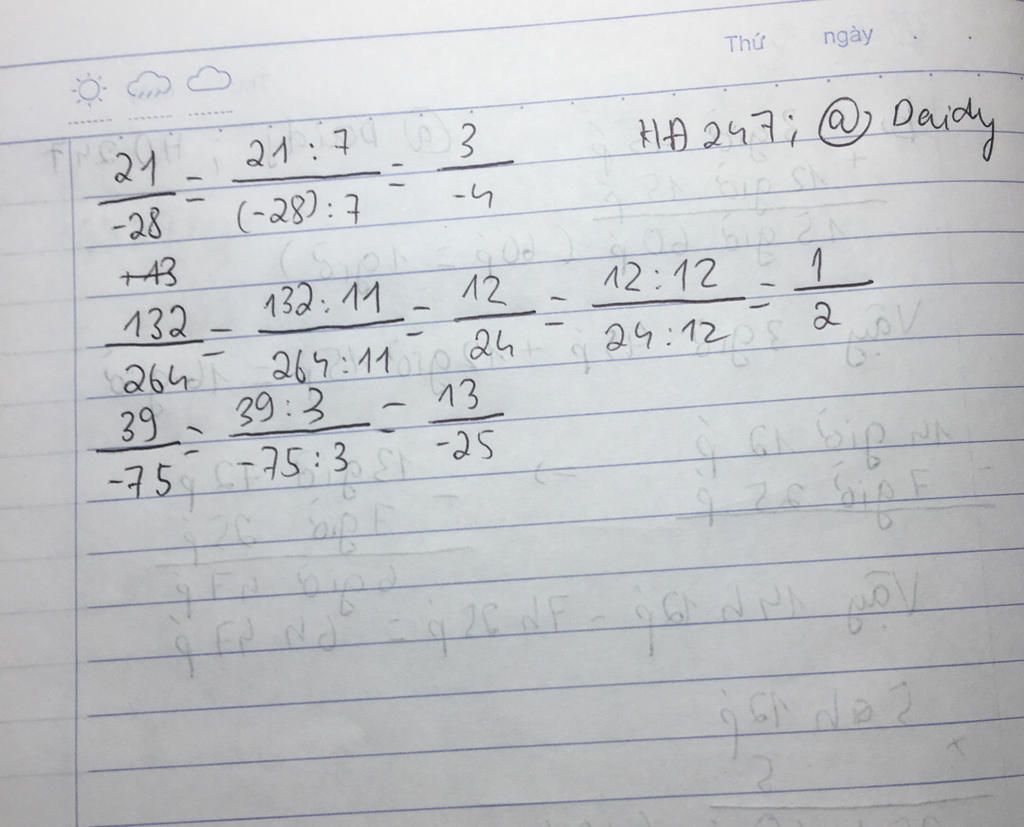 Thứ ngày . .
HĐ 247; @ Daidy
21/-28 = 21:7/(-28):7 = 3/-4
+13
132/264 = 132:11/264:11 = 12/24 = 12:12/24:12 = 1/2
39/-75 = 39:3/-75:3 = 13/-25